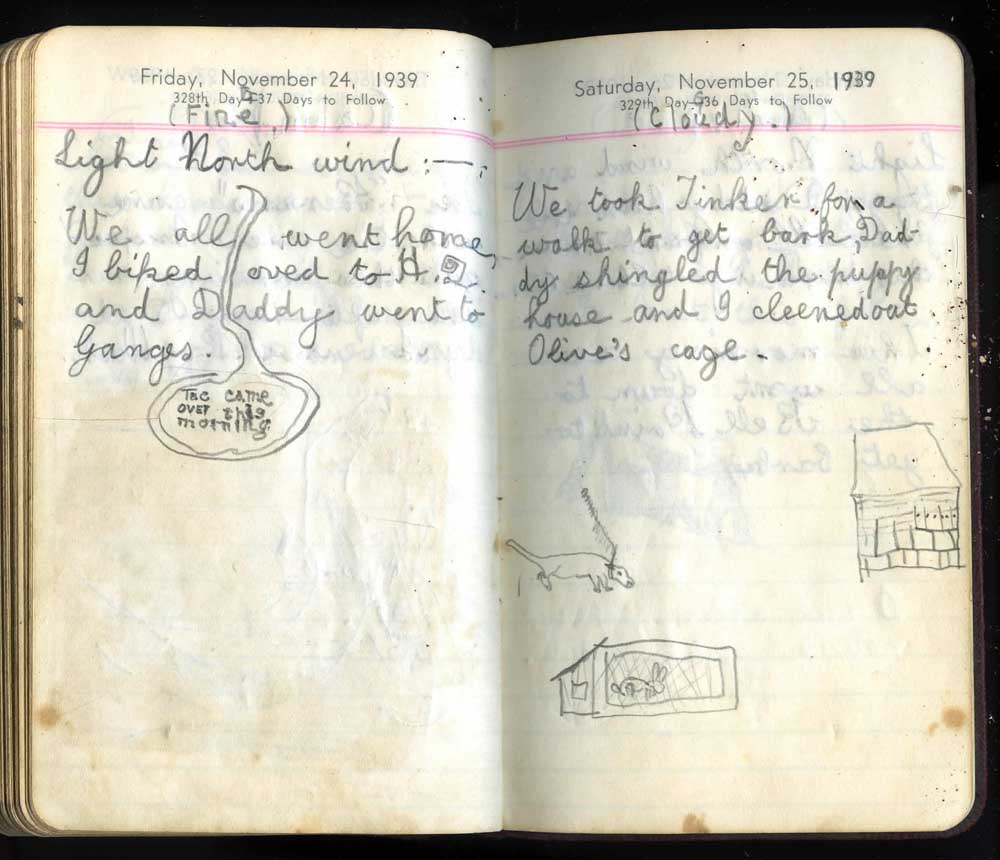 Friday, November 24, 1939
328th Day—37 Days to Follow
(Fine.)
Light North wind :—.
We all went home,
I biked oved to H.Q.
and Daddy went to
Ganges.
Tec came
over this
morning.
Saturday, November 25, 1939
329th Day—36 Days to Follow
(Cloudy.)
We took Tinker for a
walk to get bark, Dad-
dy shingled the puppy
house and I cleened out
Olive's cage.